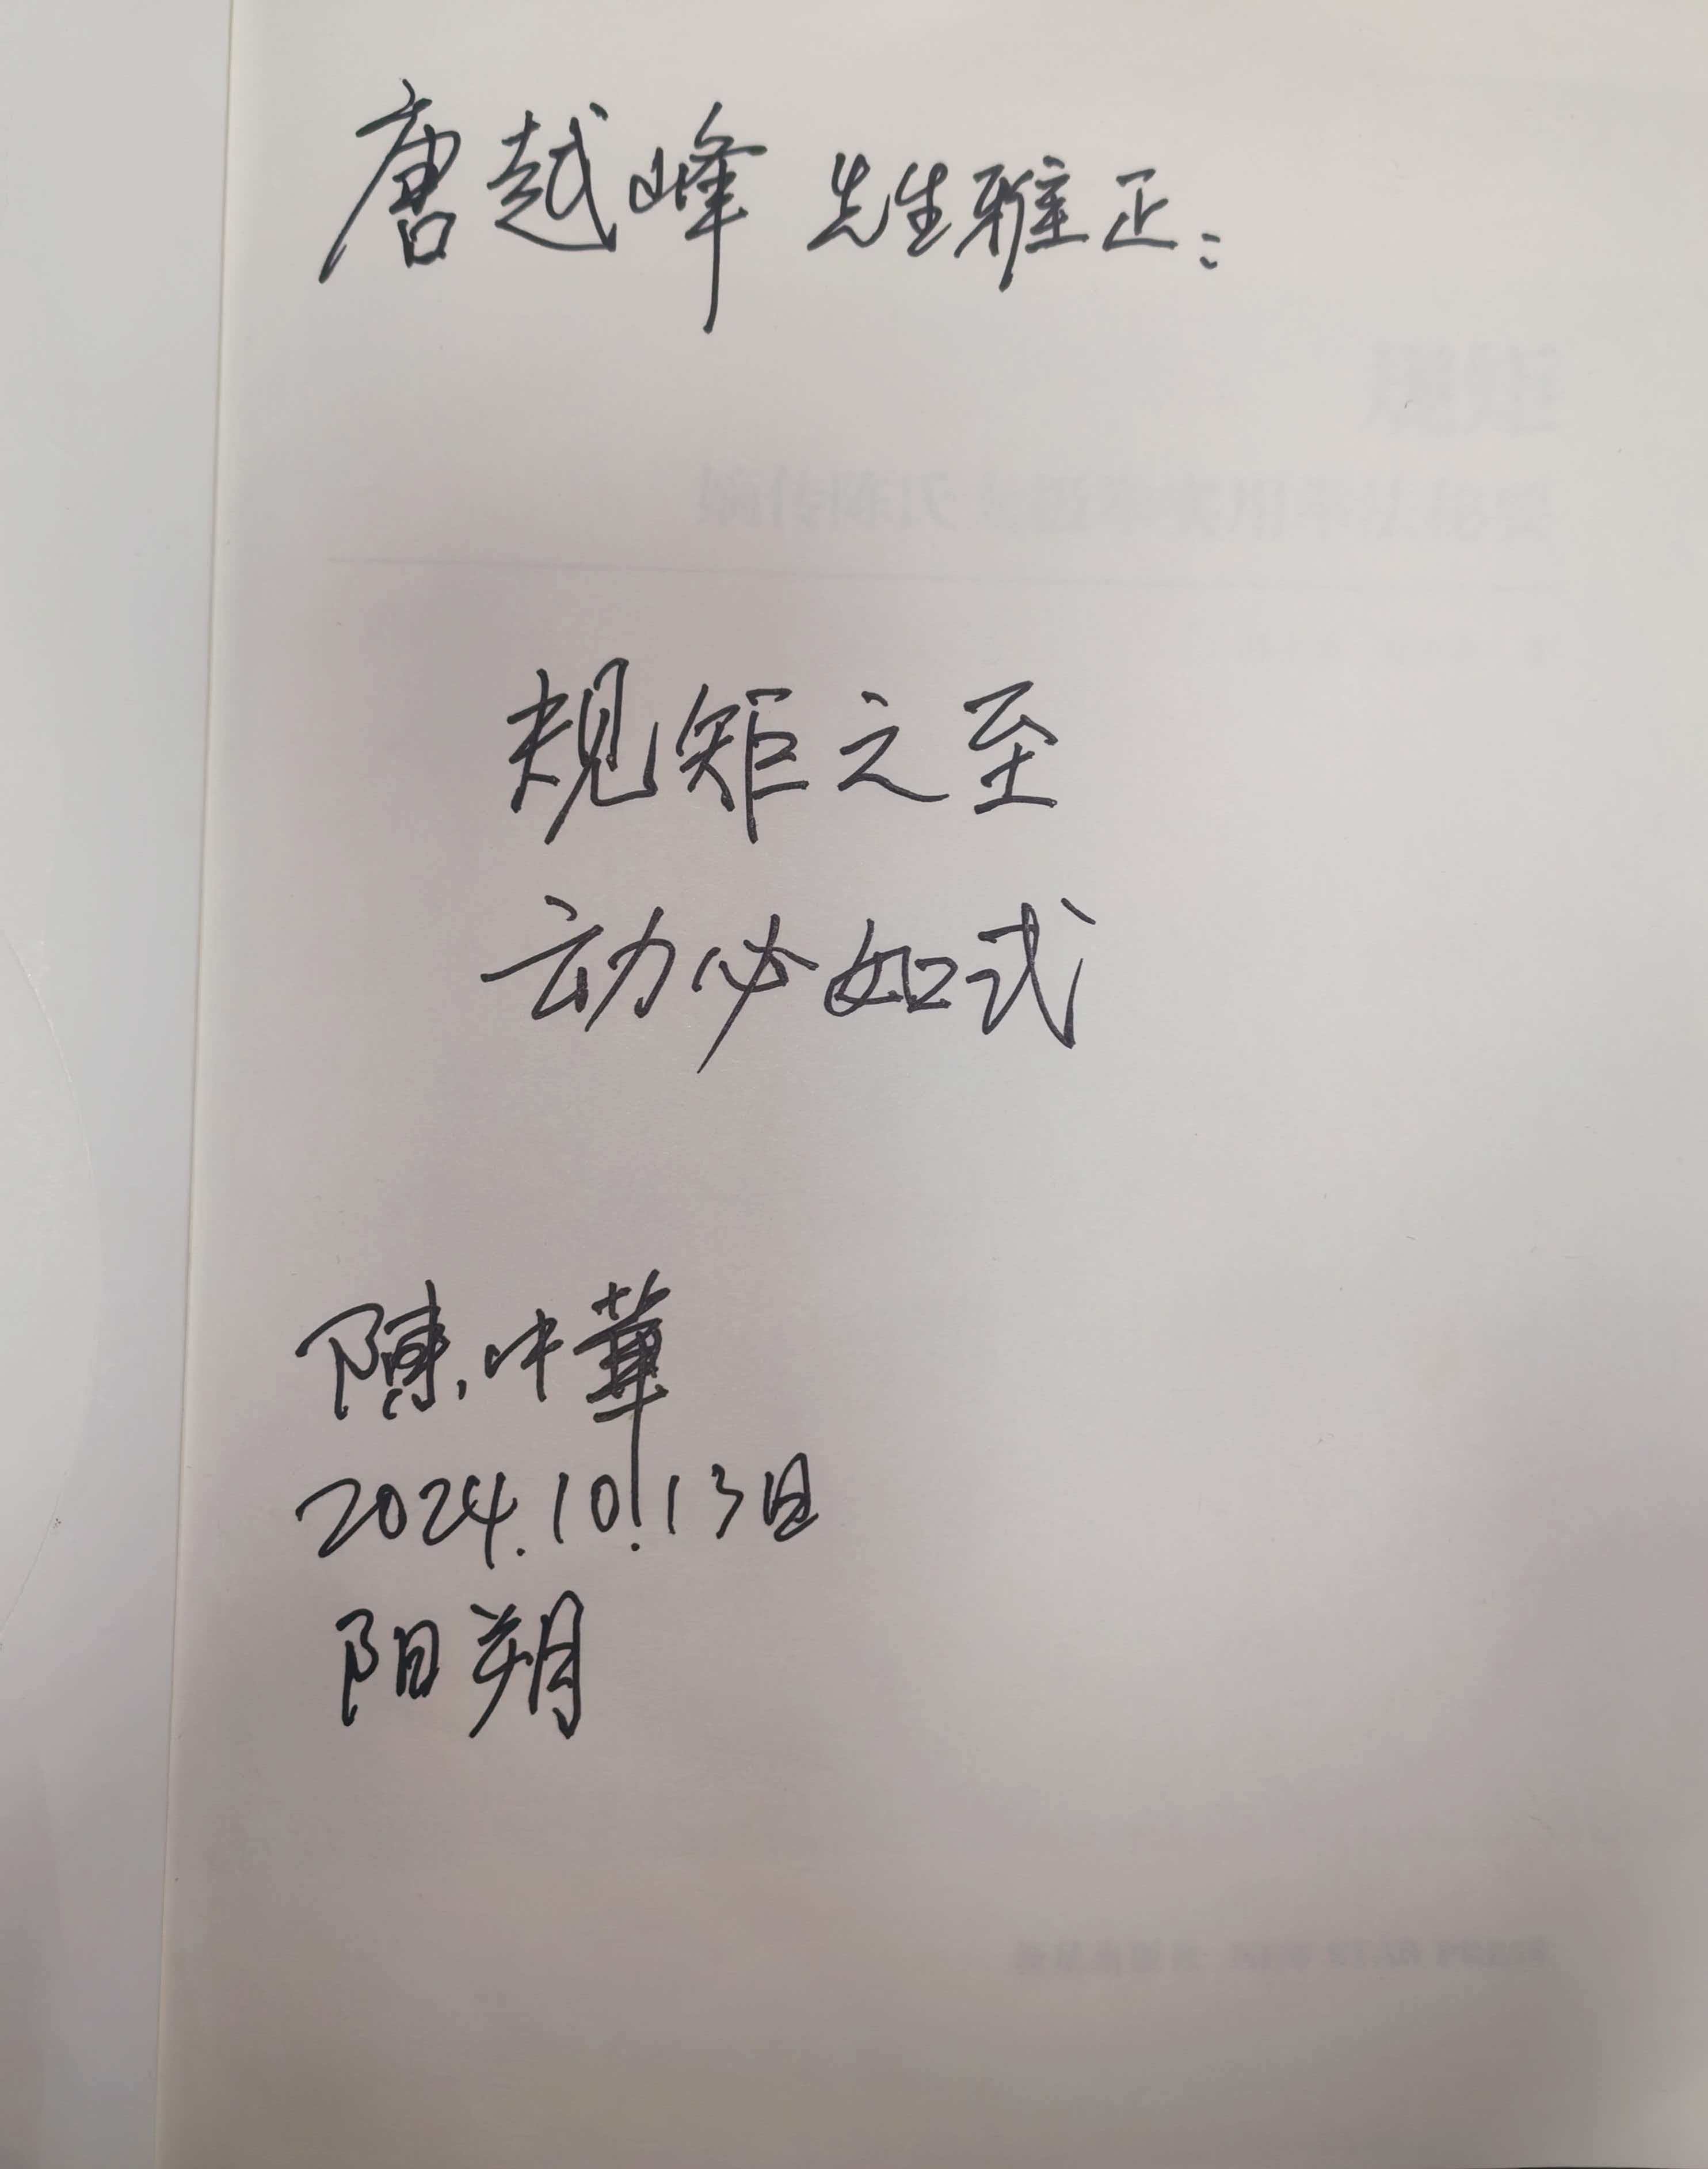 唐越峰 先生雅正：
规矩之至
动必如式
陳中華
2024.10.13日
阳朔